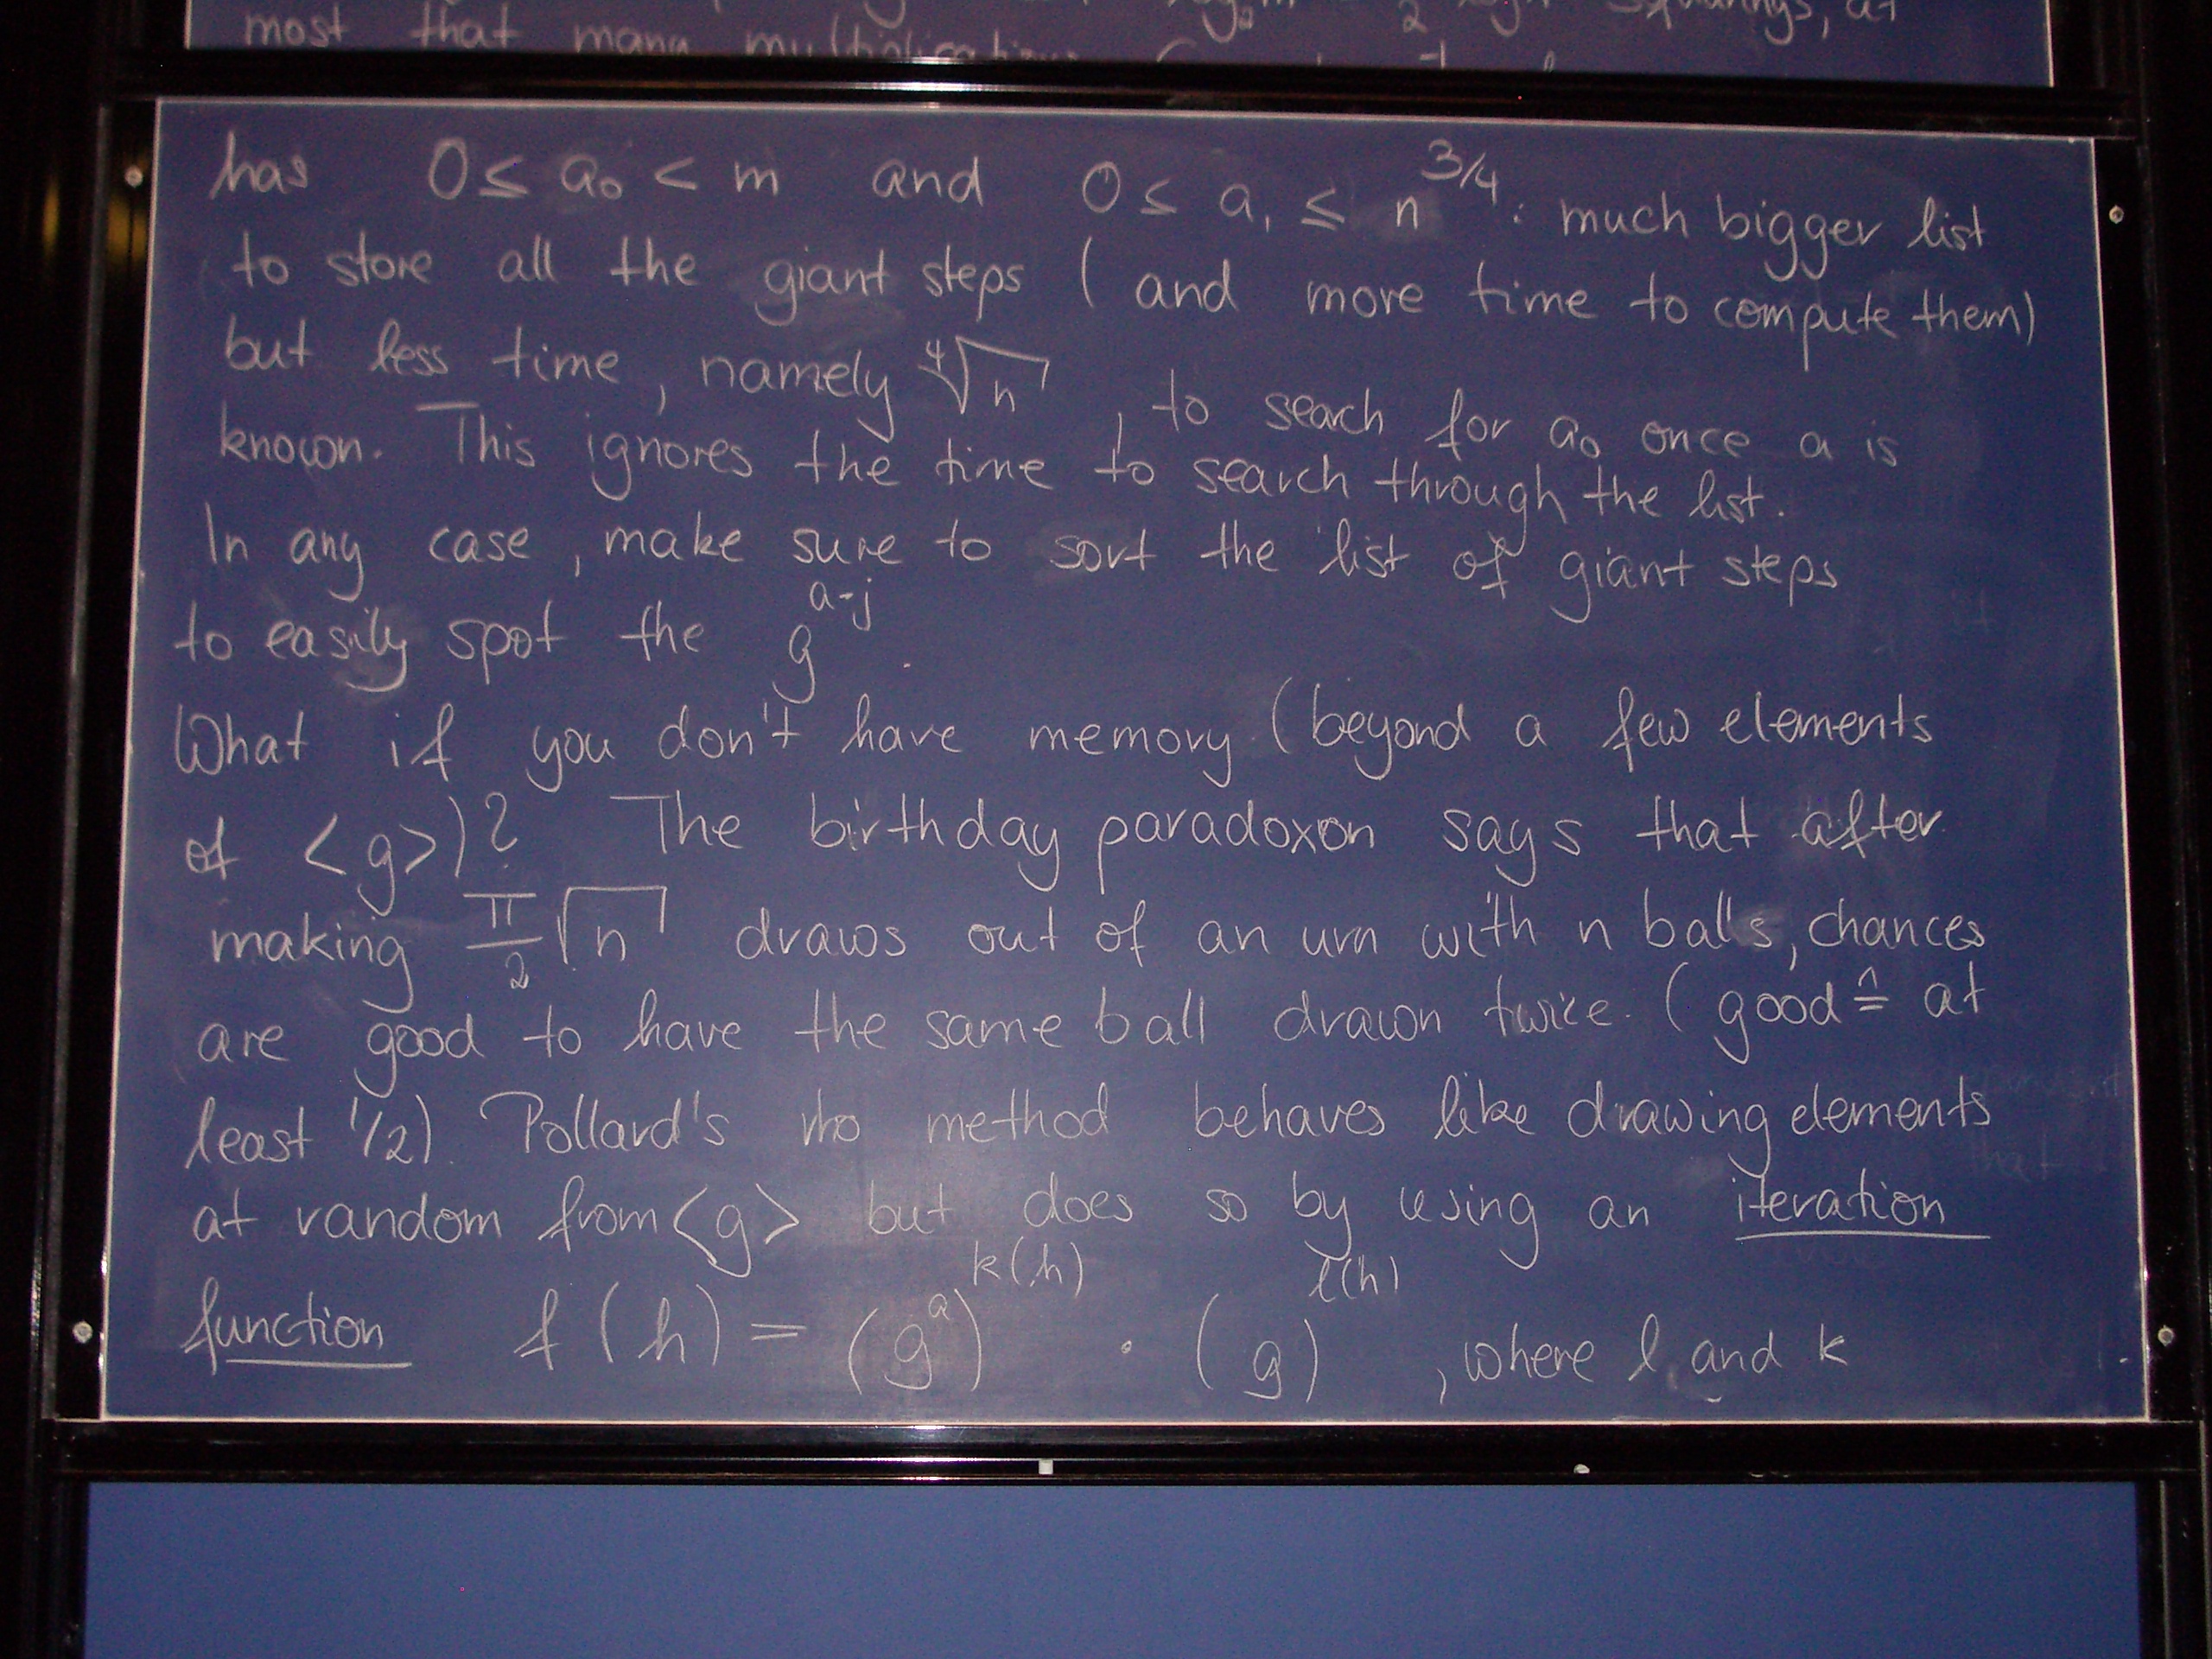 most that many multiplications
has 0 ≤ a₀ < m and 0 ≤ a₁ ≤ n^{3/4}: much bigger list
to store all the giant steps (and more time to compute them)
but less time, namely ⁴√n, to search for a₀ once a is
known. This ignores the time to search through the list.
In any case, make sure to sort the list of giant steps
to easily spot the g^{a-j}.
What if you don't have memory (beyond a few elements
of <g>)? The birthday paradoxon says that after
making π/2 √n draws out of an urn with n balls, chances
are good to have the same ball drawn twice. (good ≙ at
least 1/2). Pollard's rho method behaves like drawing elements
at random from <g> but does so by using an iteration
function f(h) = (g^a)^{k(h)} · (g)^{l(h)}, where l and k